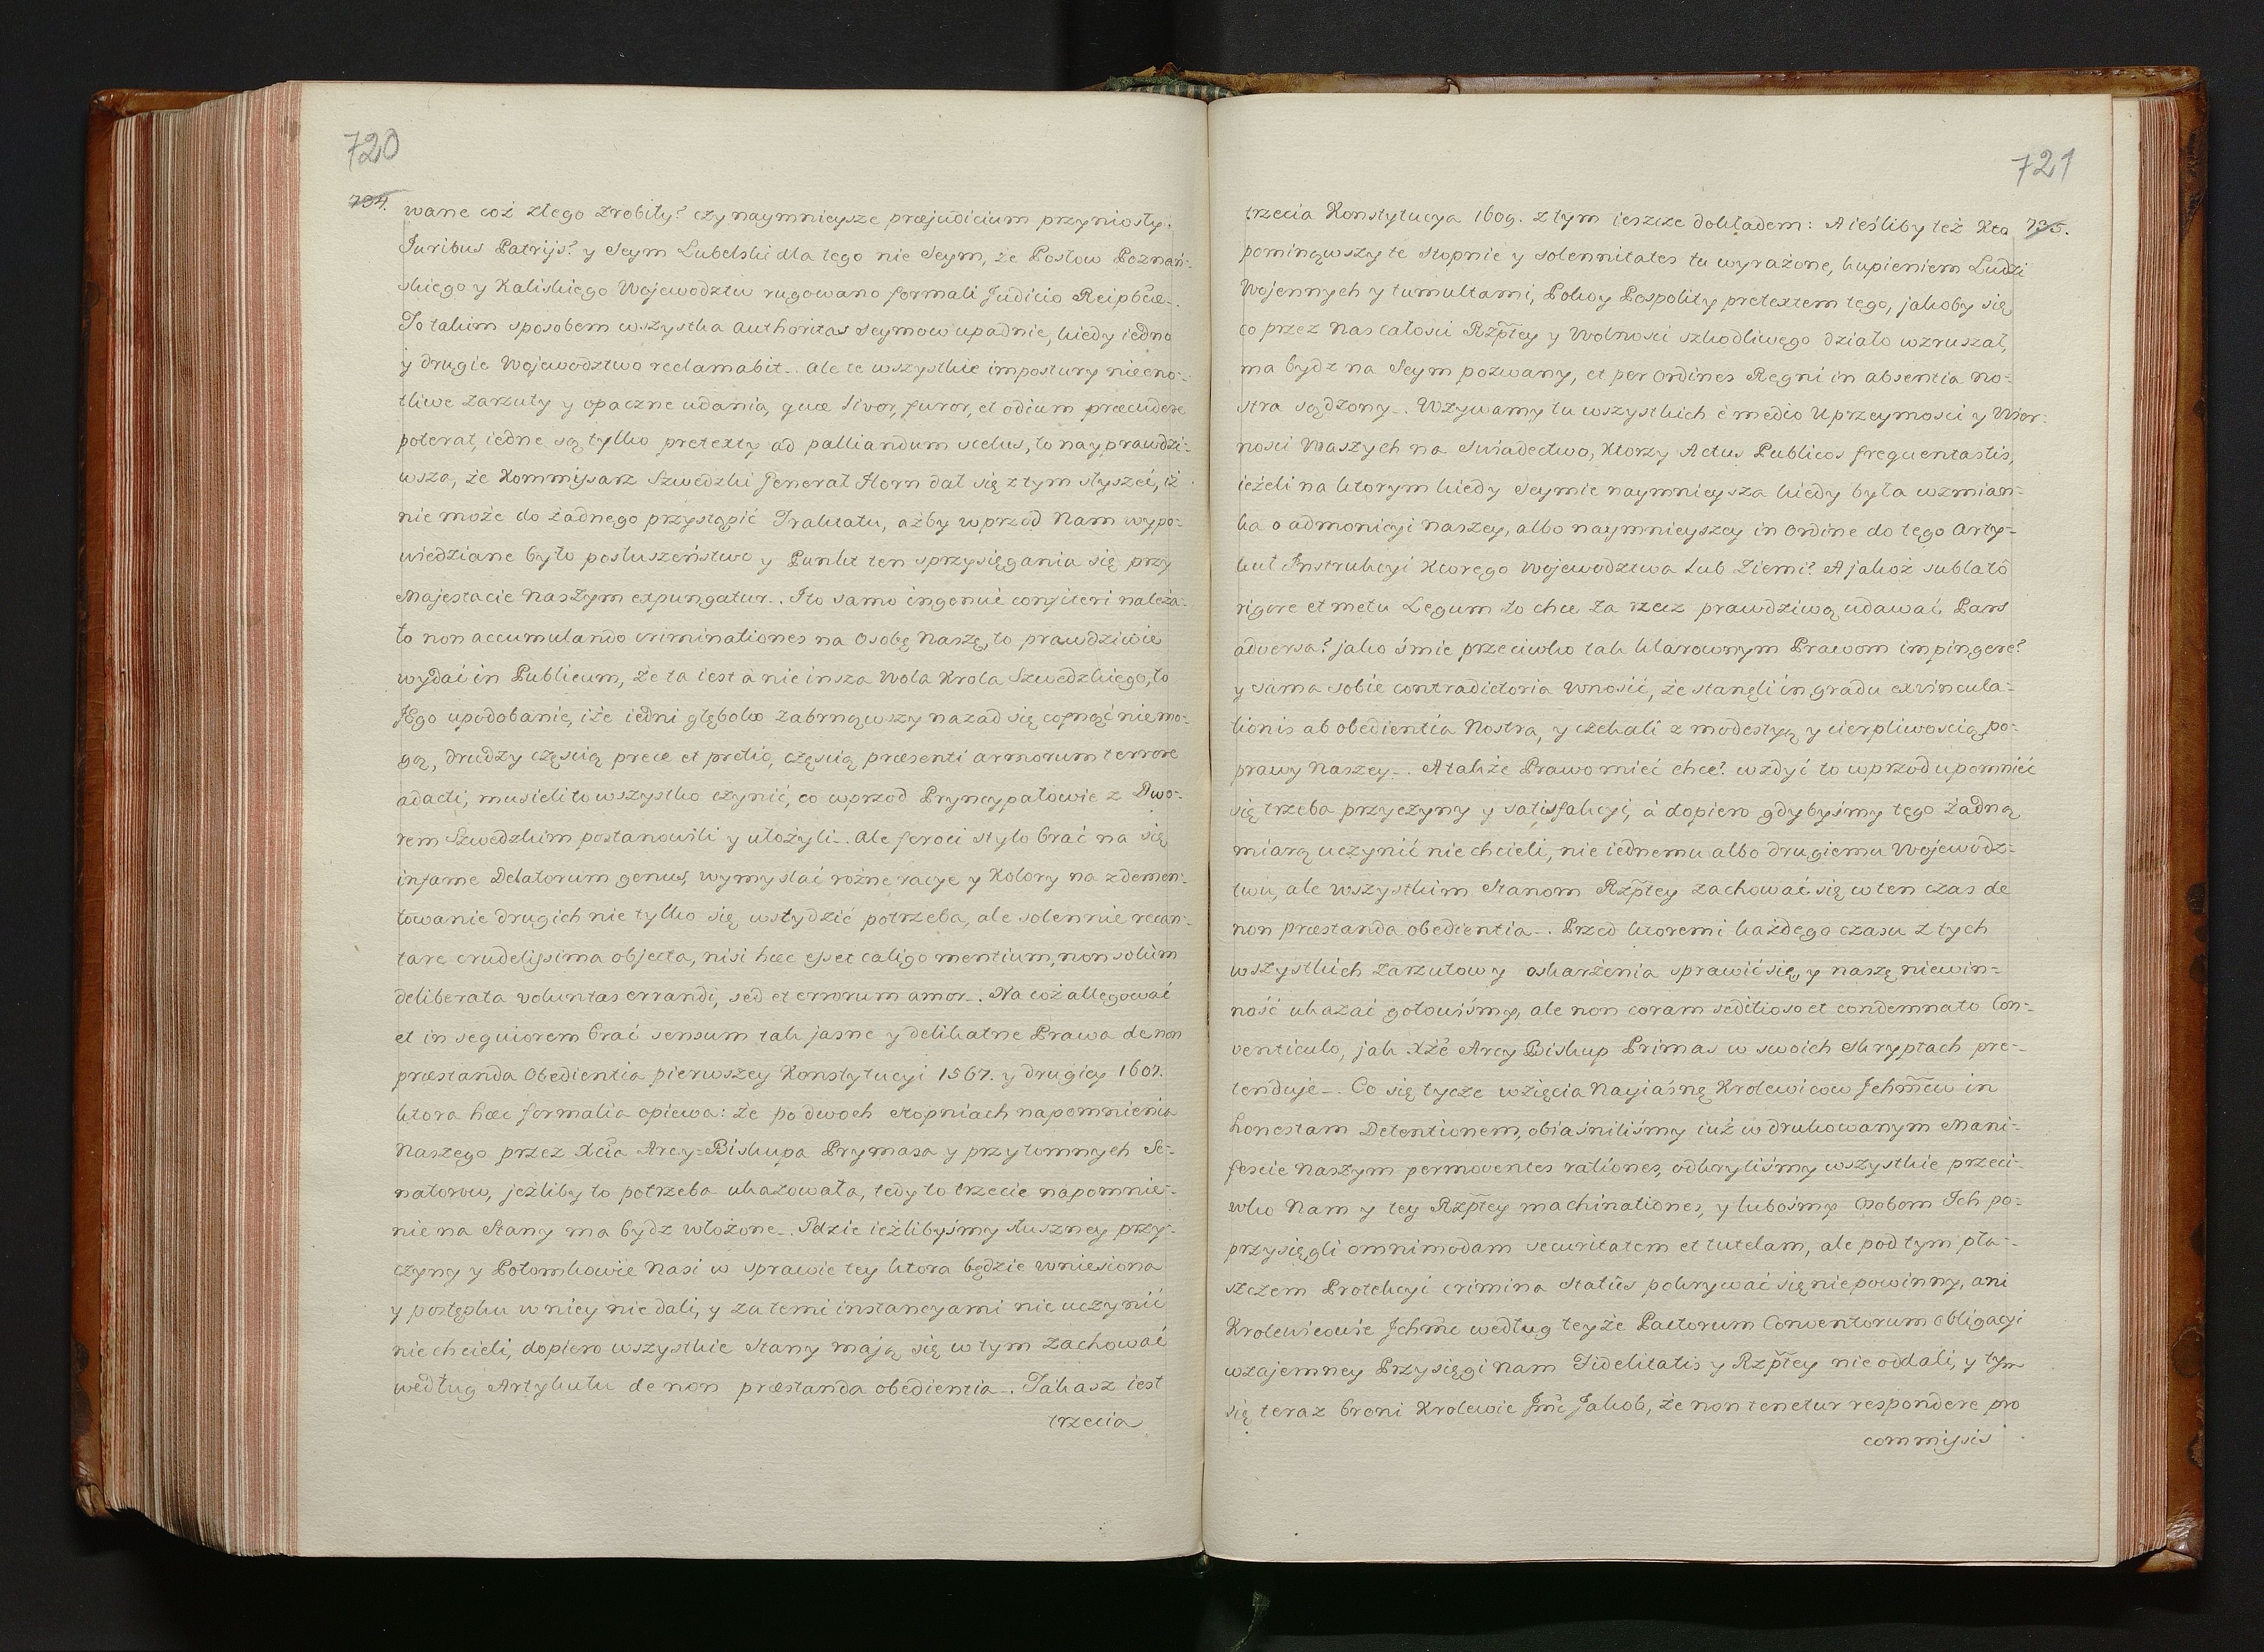 720
734.
wane coż złego zrobiły? czy naymnieysze præjudicium przyniosły
Juribus Patrijs? y Seym Lubelski dla tego nie Seym, że Posłow Poznań-
skiego y Kaliskiego Wojewodztw rugowano formali Judicio Reipbcæ.
To takim sposobem wszystka authoritas Seymow upadnie, kiedy iedno
y drugie Wojewodztwo reclamabit. ale te wszystkie impostury niecno-
tliwe zarzuty y opaczne udania, quæ livor, furor, et odium præcudere
poterat, iedne są tylko pretexty ad palliandum scelus, to nayprawdzi-
wsza, że Kommissarz Szwedzki Jenerał Horn dał się z tym słyszeć, iż
nie może do żadnego przystąpić Traktatu, ażby wprzod Nam wypo-
wiedziane było posłuszeństwo y Punkt ten sprzysięgania się przy
Majestacie Naszym expungatur. I to samo ingenuè confiteri należa-
ło non accumulando criminationes na Osobę Naszę, to prawdziwie
wydać in Publicum, że ta iest à nie insza Wola Krola Szwedzkiego, to
Jego upodobanie, iże iedni głęboko zabrnąwszy nazad się cofnąć niemo-
gą, drudzy częścią prece et pretio, częscią præsenti armorum terrore
adacti, musieli to wszystko czynić, co wprzod Pryncypałowie z Dwo-
rem Szwedzkim postanowili y ułożyli. Ale feroci stylo brać na się
infame Delatorum genus, wymyslać rożne racye y Kolory na zdemen-
towanie drugich nie tylko się wstydzić potrzeba, ale solennie recan-
tare crudelissima objecta, nisi hæc esset caligo mentium, non solùm
deliberata voluntas errandi, sed et errorum amor. Na coż allegować
et in sequiorem brać sensum tak jasne y delikatne Prawa de non
præstanda Obedientia pierwszey Konstytucyi 1567. y drugiey 1607.
ktora hæc formalia opiewa: że po dwoch stopniach napomnienia
Naszego przez Xcia Arcy-Biskupa Prymasa y przytomnych Se-
natorow, jeżliby to potrzeba ukazowała, tedy to trzecie napomnie-
nie na Stany ma bydz włożone. Gdzie ieżlibyśmy słuszney przy-
czyny y Potomkowie Nasi w sprawie tey ktora będzie wniesiona
y postępku w niey nie dali, y za temi instancyami nie uczynić
niechcieli, dopiero wszystkie Stany mają się w tym zachować
według Artykułu de non præstanda obedientia. Takasz iest
trzecia
721
735.
trzecia Konstytucya 1609. z tym ieszcze dokładem: A ieśliby też Kto
pominąwszy te stopnie y solennitates tu wyrażone, kupieniem Ludzi
Wojennych y tumultami, Pokoy Pospolity pretextem tego, jakoby się
co przez Nas całosci Rzptey y Wolnosci szkodliwego działo wzruszał,
ma bydz na Seym pozwany, et per Ordines Regni in absentia no-
stra sądzony. Wzywamy tu wszystkich è medio Uprzeymosci y Wier-
nosci Waszych na Swiadectwo, Ktorzy Actus Publicos frequentastis,
ieżeli na ktorym kiedy Seymie naymnieysza kiedy była wzmian-
ka o admonicyi naszey, albo naymnieyszey in Ordine do tego arty-
kuł Instrukcyi Ktorego Wojewodztwa lub Ziemi? A jakoż sublatô
rigore et metu Legum to chce za rzecz prawdziwą udawać Pars
adversa? jako śmie przeciwko tak klarownym Prawom impingere?
y sama sobie contradictoria wnosić, że stanęli in gradu exvincula-
tionis ab obedientia Nostra, y czekali z modestyą y cierpliwoscią po-
prawy Naszey. A także Prawo mieć chce? wzdyć to wprzod upomnieć
się trzeba przyczyny y satisfakcyi, à dopiero gdybyśmy tego żadną
miarą uczynić nie chcieli, nie iednemu albo drugiemu Wojewodz-
twu, ale wszystkim Stanom Rzptey zachować się w ten czas de
non præstanda obedientia. Przed ktoremi każdego czasu z tych
wszystkich zarzutow y oskarżenia sprawić się y naszę niewin-
ność ukazać gotowiśmy, ale non coram seditioso et condemnato Con-
venticulo, jak Xże Arcy Biskup Primas w swoich Skryptach pre-
tenduje. Co się tycze wzięcia Nayiaśnę Krolewicow Jchmcw in
honestam Detentionem, obiaśniliśmy iuż w drukowanym Mani-
feście Naszym permoventes rationes, odkryliśmy wszystkie przeci-
wko Nam y tey Rzptey machinationes, y lubośmy Osobom Ich po-
przysięgli omnimodam securitatem et tutelam, ale pod tym pła-
szczem Protekcyi crimina Statûs pokrywać się nie powinny, ani
Krolewicowie Jchmc według teyże Pactorum Conventorum obligacyi
wzajemney Przysięgi Nam Fidelitatis y Rzptey nie oddali, y tym
się teraz broni Krolewic Jmc Jakob, że non tenetur respondere pro
commissis